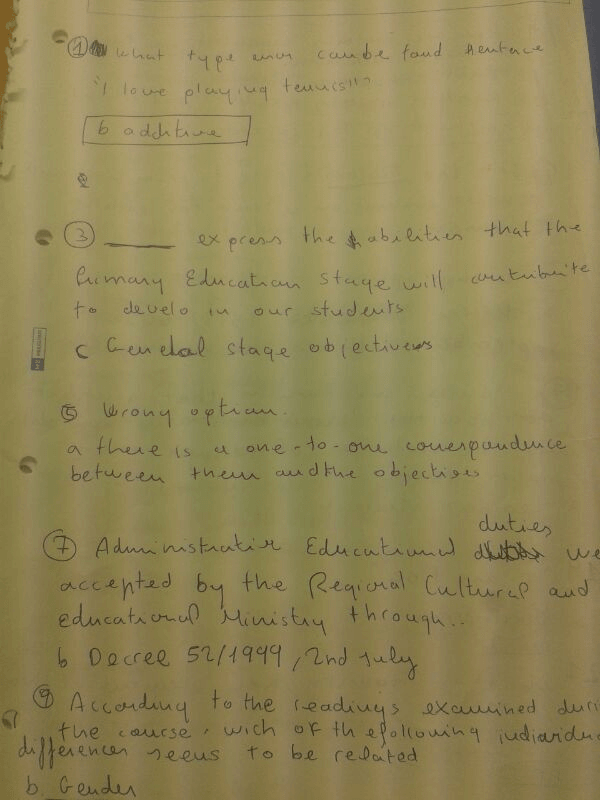 ① What type error can be found sentence
"I love playing tennis"?
b additive
③ ______ express the abilities that the
Primary Education stage will contribuite
to develo in our students
c General stage objectives
⑤ Wrong option.
a there is a one-to-one correspondence
between them and the objectives
⑦ Administrative Educational duties we
accepted by the Regional Cultural and
educational Ministry through..
b Decree 52/1999, 2nd July
⑨ According to the readings examined duri
the course, wich of the following individu
differences seems to be related
b. Gender